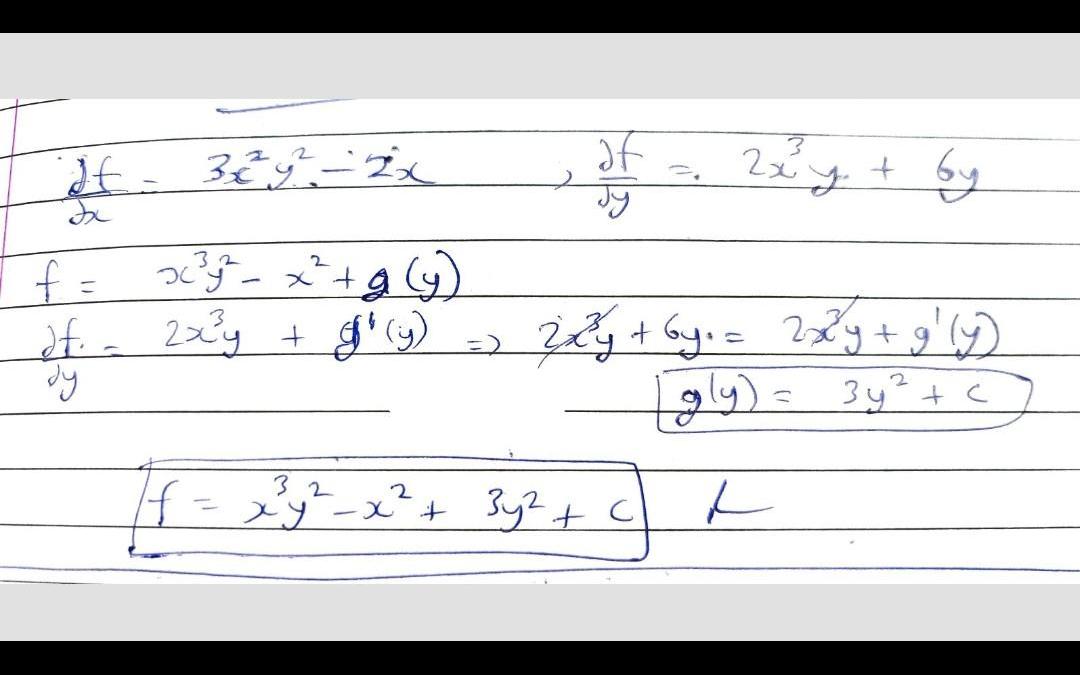 ∂f/∂x = 3x²y² - 2x , ∂f/∂y = 2x³y + 6y
f = x³y² - x² + g(y)
∂f/∂y = 2x³y + g'(y) => 2x³y + 6y = 2x³y + g'(y)
g(y) = 3y² + c
f = x³y² - x² + 3y² + c